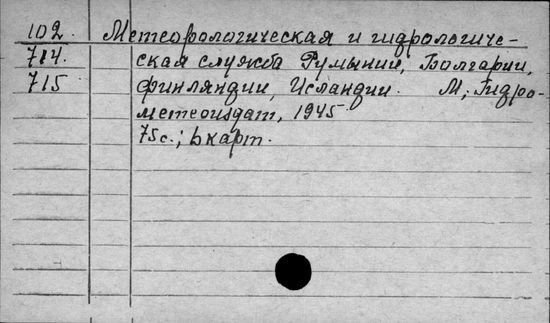 102. Метеорологическая и гидрологиче-
714. ская служба Румынии, Болгарии,
715 Финляндии, Исландии. М; Гидро-
метеоиздат, 1945
75с.; 6карт.